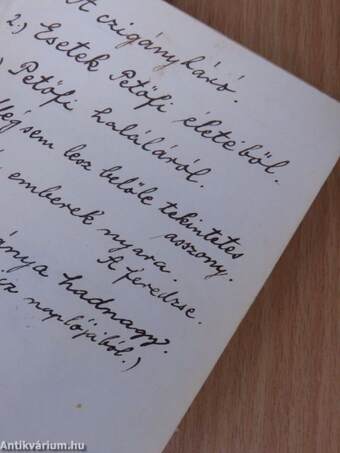 A czigánybáró.
2.) Esetek Petőfi életéből.
) Petőfi haláláról.
Mégsem lesz belőle tekintetes
asszony.
emberek nyara.
A feredzse.
ánya hadnagy.
naplójából.)
Antikvárium.hu